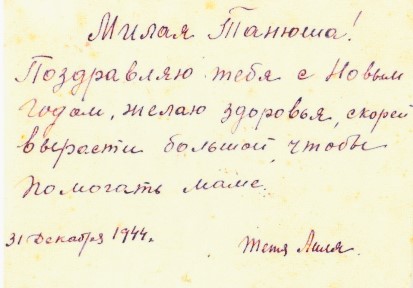 Милая Танюша!
Поздравляю тебя с Новым
годом, желаю здоровья, скорей
вырасти большой, чтобы
помогать маме.
31 декабря 1944г.
Тетя Лиля.